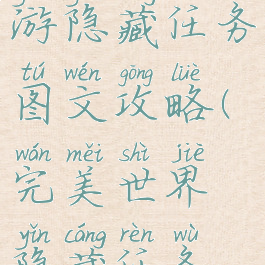 游隐藏任务
tú wén gōng lüè
图文攻略(
wán měi shì jiè
完美世界
yǐn cáng rèn wù
隐藏任务